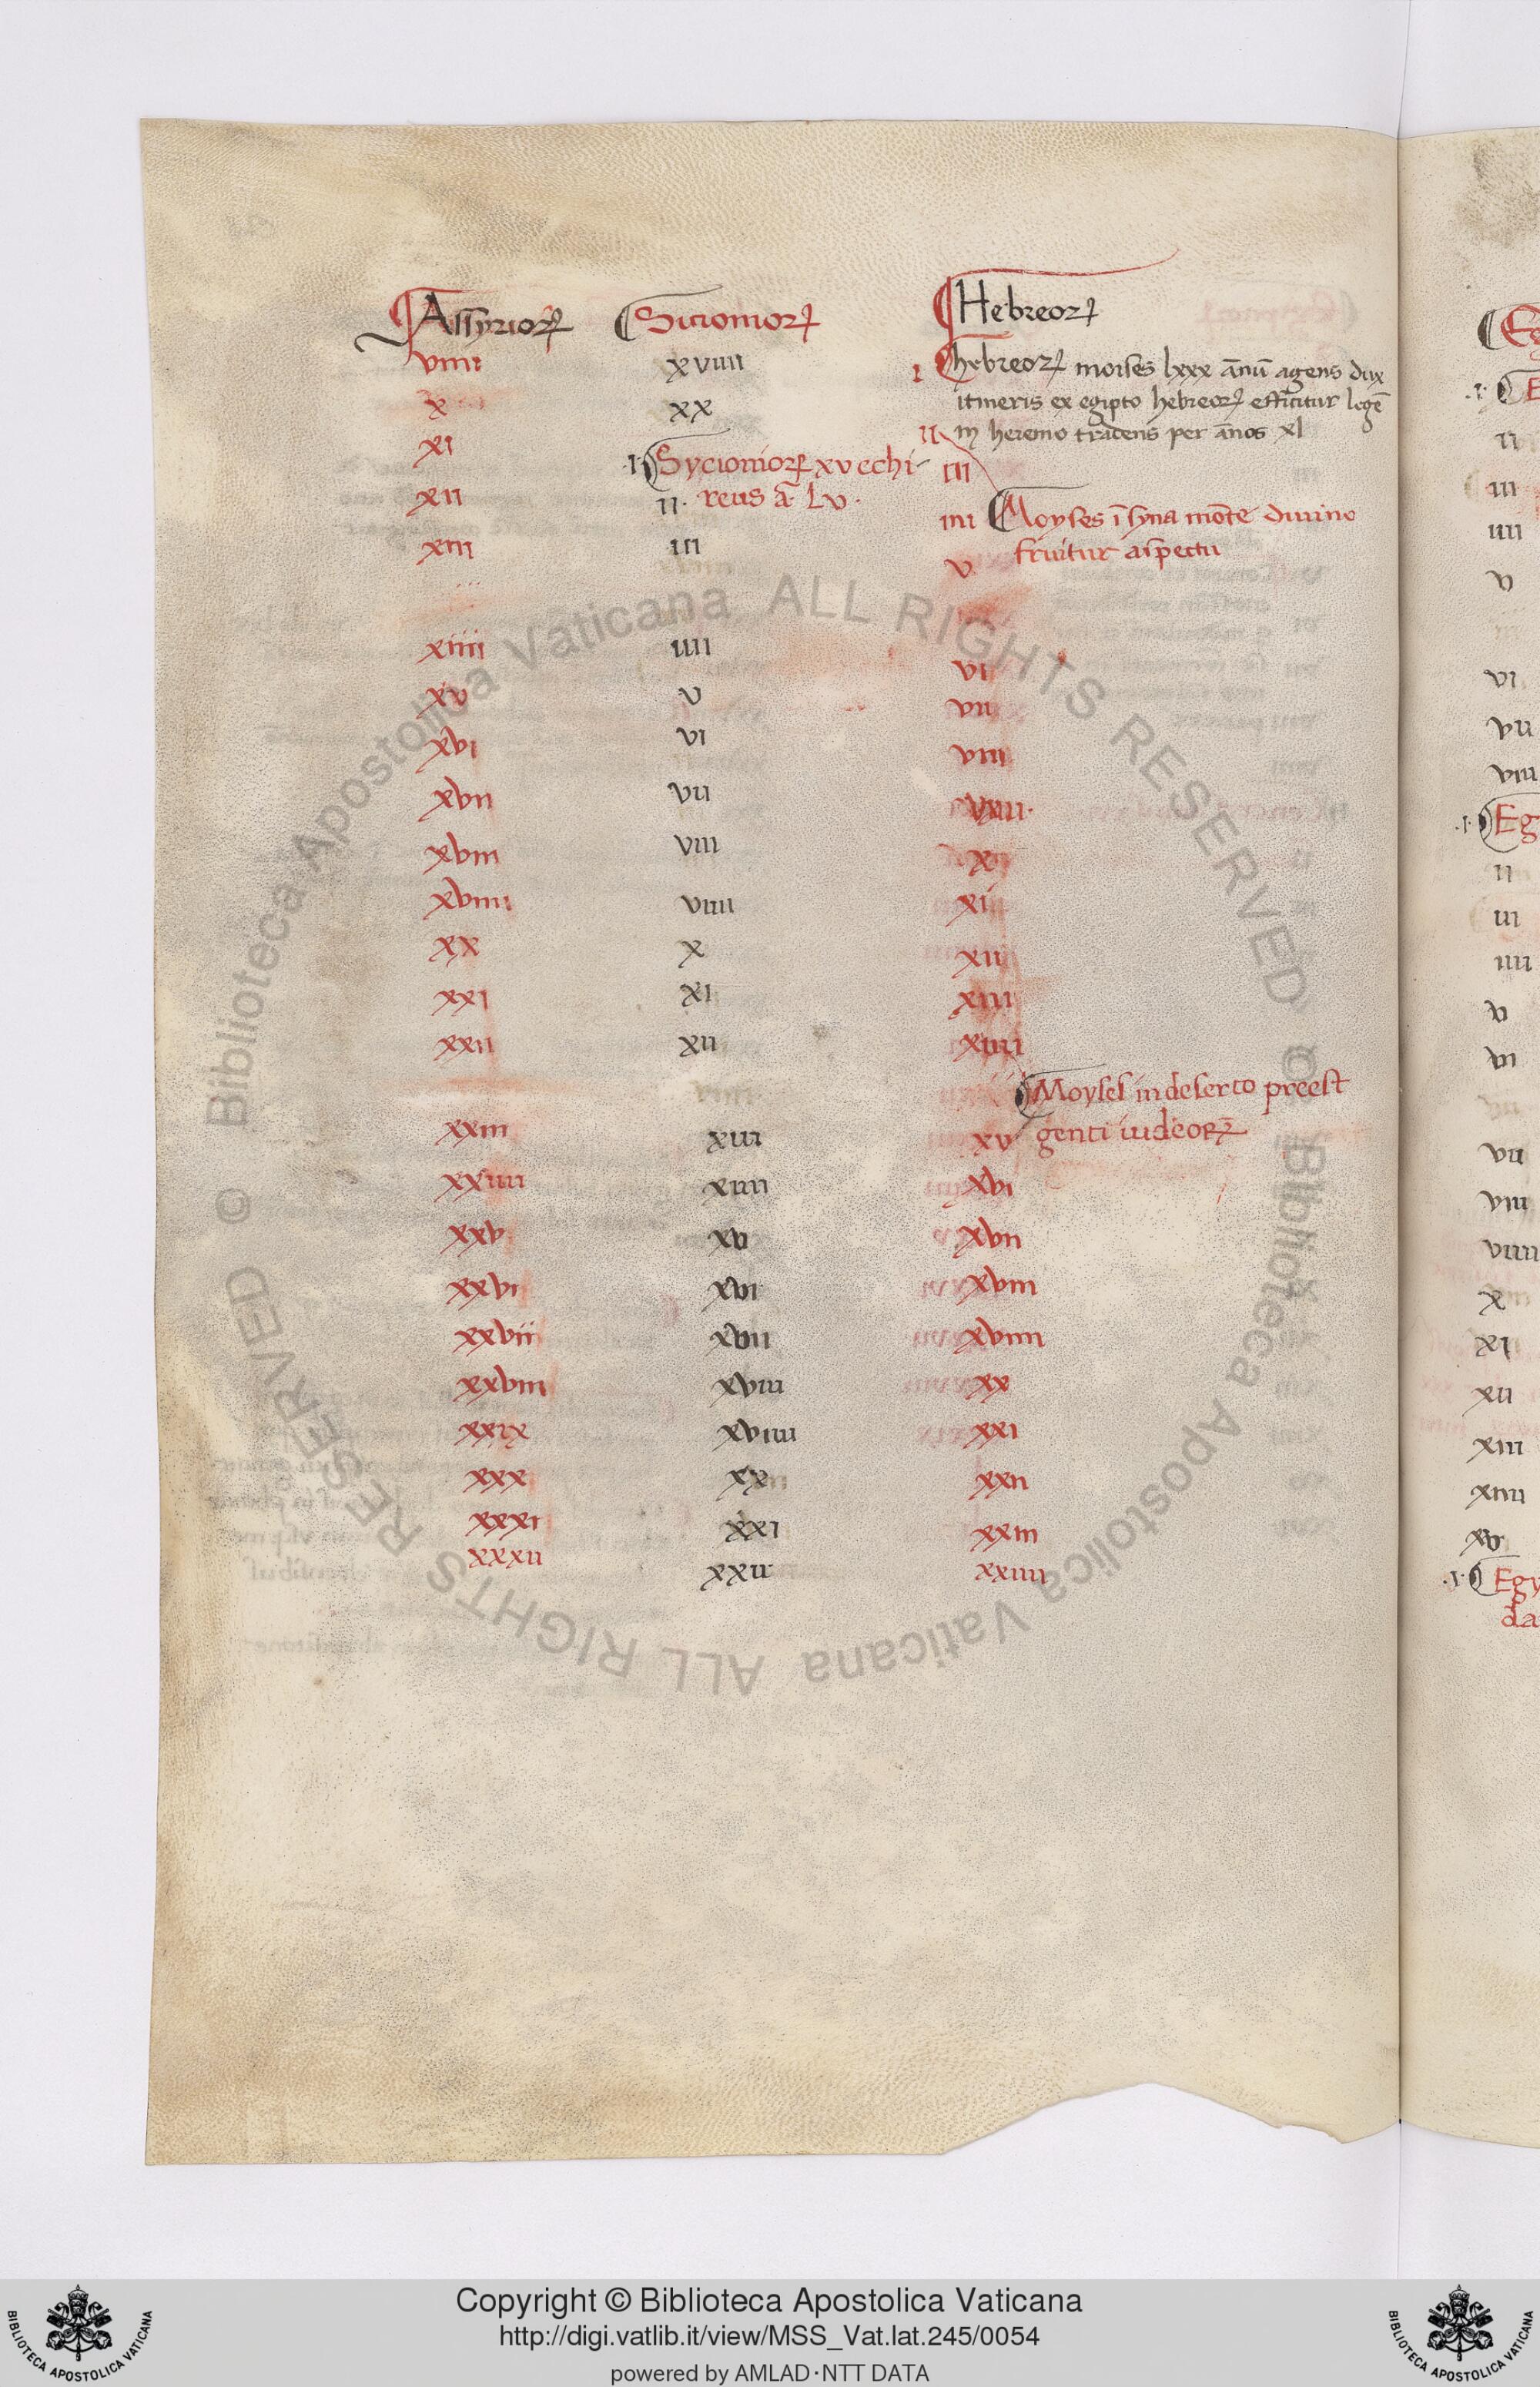 Assyrioꝝ Sicionioꝝ Hebreoꝝ
viiii xviiii i hebreoꝝ moises lxxx ānū agens dux
x xx itineris ex egipto hebreoꝝ efficitur legē
ii in heremo tradens per ānos xl
xi ·i· Sycionioꝝ xv echi- iii
xii ii· reus ā· Lv· iiii Moyses ī syna mōte divino
xiii iii v fruitur aspectu
xiiii iiii vi
xv v vii
xvi vi viii
xvii vii
xviii viii x
xviiii viiii xi
xx x xii
xxi xi xiii
xxii xii xiiii
Moyses in deserto preest
xxiii xiii xv genti iudeoꝝ
xxiiii xiiii xvi
xxv xv xvii
xxvi xvi xviii
xxvii xvii xviiii
xxviii xviii xx
xxix xviiii xxi
xxx xx xxii
xxxi xxi xxiii
xxxii xxii xxiiii
·i· E
ii
iii
iiii
v
vi
vii
viii
·i· Eg
ii
iii
iiii
v
vi
vii
viii
viiii
x
xi
xii
xiii
xiiii
xv
·i· Egy
da
© Biblioteca Apostolica Vaticana ALL RIGHTS RESERVED © Biblioteca Apostolica Vaticana ALL RIGHTS RESERVED
Copyright © Biblioteca Apostolica Vaticana
http://digi.vatlib.it/view/MSS_Vat.lat.245/0054
powered by AMLAD·NTT DATA
BIBLIOTECA APOSTOLICA VATICANA
BIBLIOTECA APOSTOLICA VATICANA